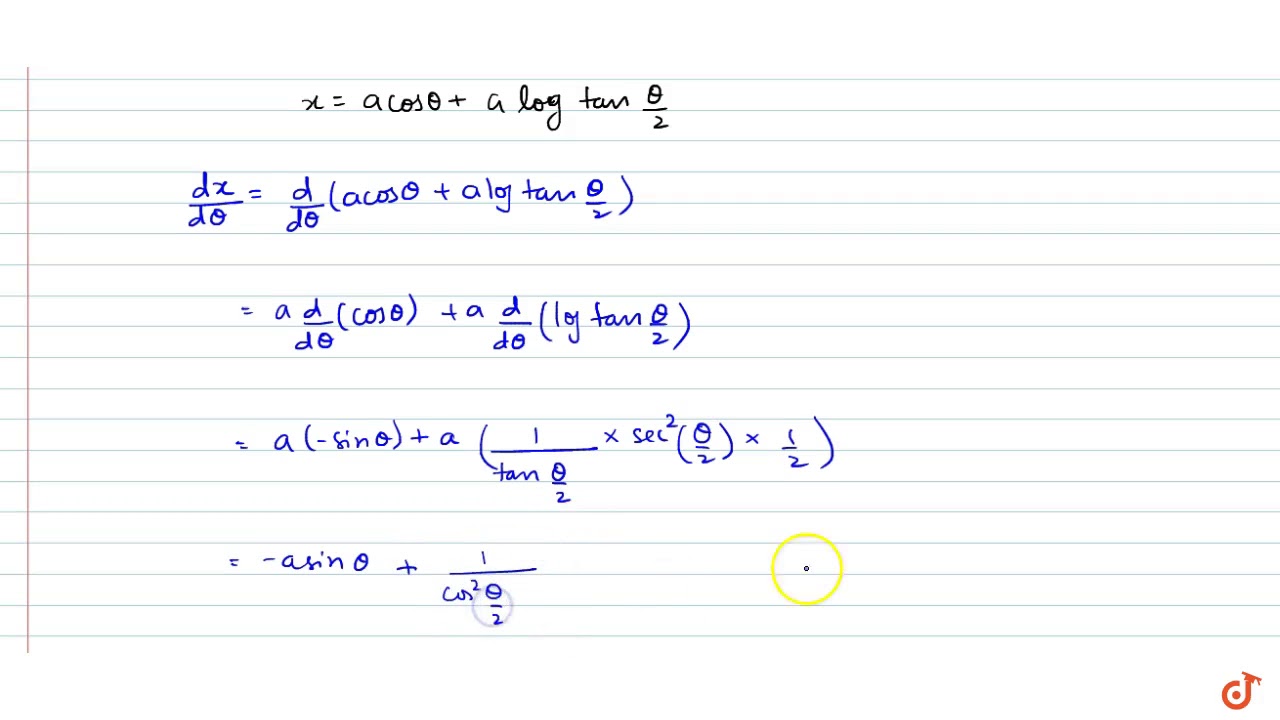 x = a cosθ + a log tan θ/2
dx/dθ = d/dθ (a cosθ + a log tan θ/2)
= a d/dθ (cosθ) + a d/dθ (log tan θ/2)
= a (-sinθ) + a (1/tan θ/2 × sec² (θ/2) × 1/2)
= -a sin θ + 1/cos² θ/2